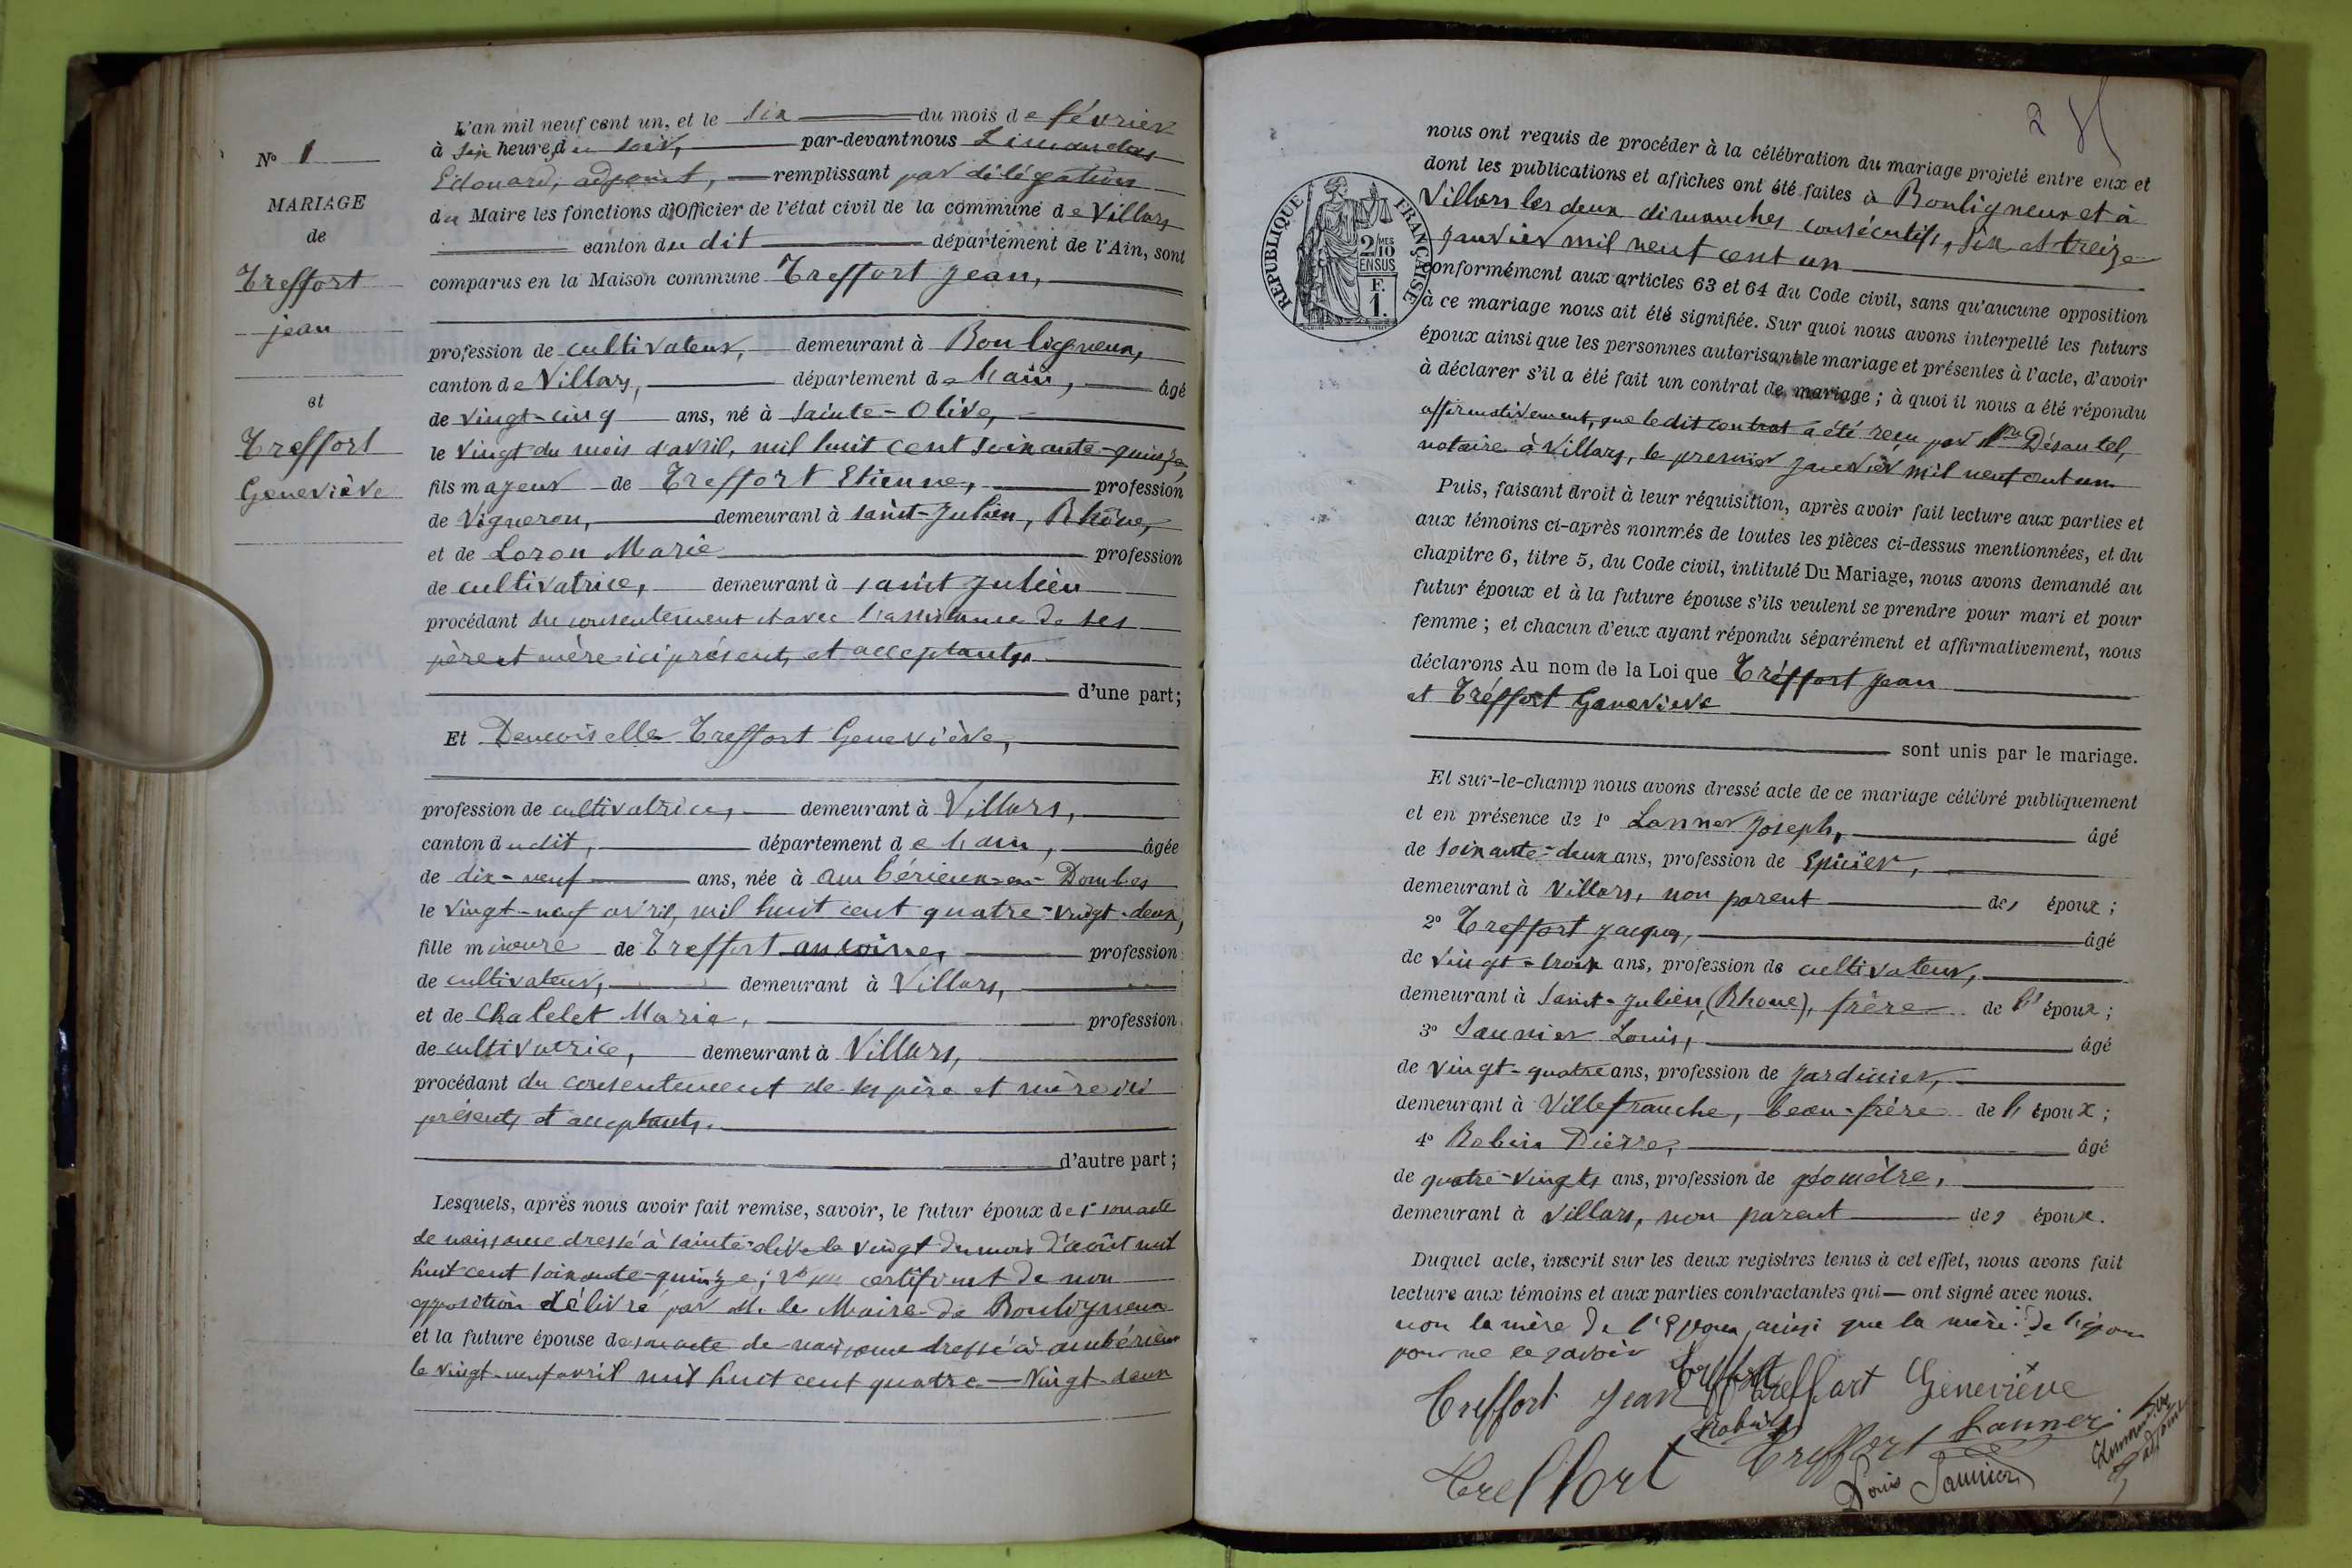 N° 1
MARIAGE
de
Treffort
jean
et
Treffort
Geneviève
L'an mil neuf cent un, et le six du mois de février
à six heures du soir, par-devant nous Limandas
Edouard, adjoint, remplissant par délégation
du Maire les fonctions d'Officier de l'état civil de la commune de Villars
canton du dit département de l'Ain, sont
comparus en la Maison commune Treffort Jean,
profession de cultivateur, demeurant à Bouligneux,
canton de Villars, département de l'ain, âgé
de vingt-cinq ans, né à Sainte-Olive,
le vingt du mois d'avril, mil huit cent soixante-quinze,
fils majeur de Treffort Etienne, profession
de Vigneron, demeurant à Saint-Julien, Rhône,
et de Loron Marie profession
de cultivatrice, demeurant à Saint Julien
procédant du consentement et avec l'assistance de ses
père et mère ici présents et acceptants
d'une part;
Et Demoiselle Treffort Geneviève,
profession de cultivatrice, demeurant à Villars,
canton dudit, département de l'ain, âgée
de dix-neuf ans, née à ambérieux-en-Dombes
le vingt-neuf avril, mil huit cent quatre-vingt-deux,
fille mineure de Treffort antoine, profession
de cultivateur, demeurant à Villars,
et de Chalelet Marie, profession
de cultivatrice, demeurant à Villars,
procédant du consentement de ses père et mère ici
présents et acceptants.
d'autre part;
Lesquels, après nous avoir fait remise, savoir, le futur époux de 1° son acte
de naissance dressé à Sainte-Olive le vingt du mois d'août mil
huit cent soixante-quinze; 2° un certificat de non
opposition délivré par M. le Maire de Bouligneux
et la future épouse de son acte de naissance dressé à ambérieux
le vingt-neuf avril mil huit cent quatre-vingt-deux
nous ont requis de procéder à la célébration du mariage projeté entre eux et
dont les publications et affiches ont été faites à Bouligneux et à
Villars les deux dimanches consécutifs, six et treize
janvier mil neuf cent un
conformément aux articles 63 et 64 du Code civil, sans qu'aucune opposition
à ce mariage nous ait été signifiée. Sur quoi nous avons interpellé les futurs
époux ainsi que les personnes autorisant le mariage et présentes à l'acte, d'avoir
à déclarer s'il a été fait un contrat de mariage; à quoi il nous a été répondu
affirmativement, que le dit contrat a été reçu par Me Désautel,
notaire à Villars, le premier janvier mil neuf cent un.
RÉPUBLIQUE FRANÇAISE
2 MES
10
EN SUS
F.
1.
Puis, faisant droit à leur réquisition, après avoir fait lecture aux parties et
aux témoins ci-après nommés de toutes les pièces ci-dessus mentionnées, et du
chapitre 6, titre 5, du Code civil, intitulé Du Mariage, nous avons demandé au
futur époux et à la future épouse s'ils veulent se prendre pour mari et pour
femme; et chacun d'eux ayant répondu séparément et affirmativement, nous
déclarons Au nom de la Loi que Tréffort Jean
et Tréffort Geneviève
sont unis par le mariage.
Et sur-le-champ nous avons dressé acte de ce mariage célébré publiquement
et en présence de 1° Lanner Joseph, âgé
de soixante-deux ans, profession de Epicier,
demeurant à Villars, non parent des époux;
2° Treffort Jacques, âgé
de vingt-trois ans, profession de cultivateur,
demeurant à Saint-Julien, (Rhone), frère de l'époux;
3° Saunier Louis, âgé
de vingt-quatre ans, profession de jardinier,
demeurant à Villefranche, beau-frère de l'époux;
4° Robin Pierre, âgé
de quatre-vingts ans, profession de géomètre,
demeurant à Villars, non parent des époux.
Duquel acte, inscrit sur les deux registres tenus à cet effet, nous avons fait
lecture aux témoins et aux parties contractantes qui ont signé avec nous.
non la mère de l'époux, ainsi que la mère de l'épouse
pour ne le savoir
Treffort Jean Treffort Treffort Geneviève
Robin Treffort Lanner
Treffort Louis Saunier
adjoint